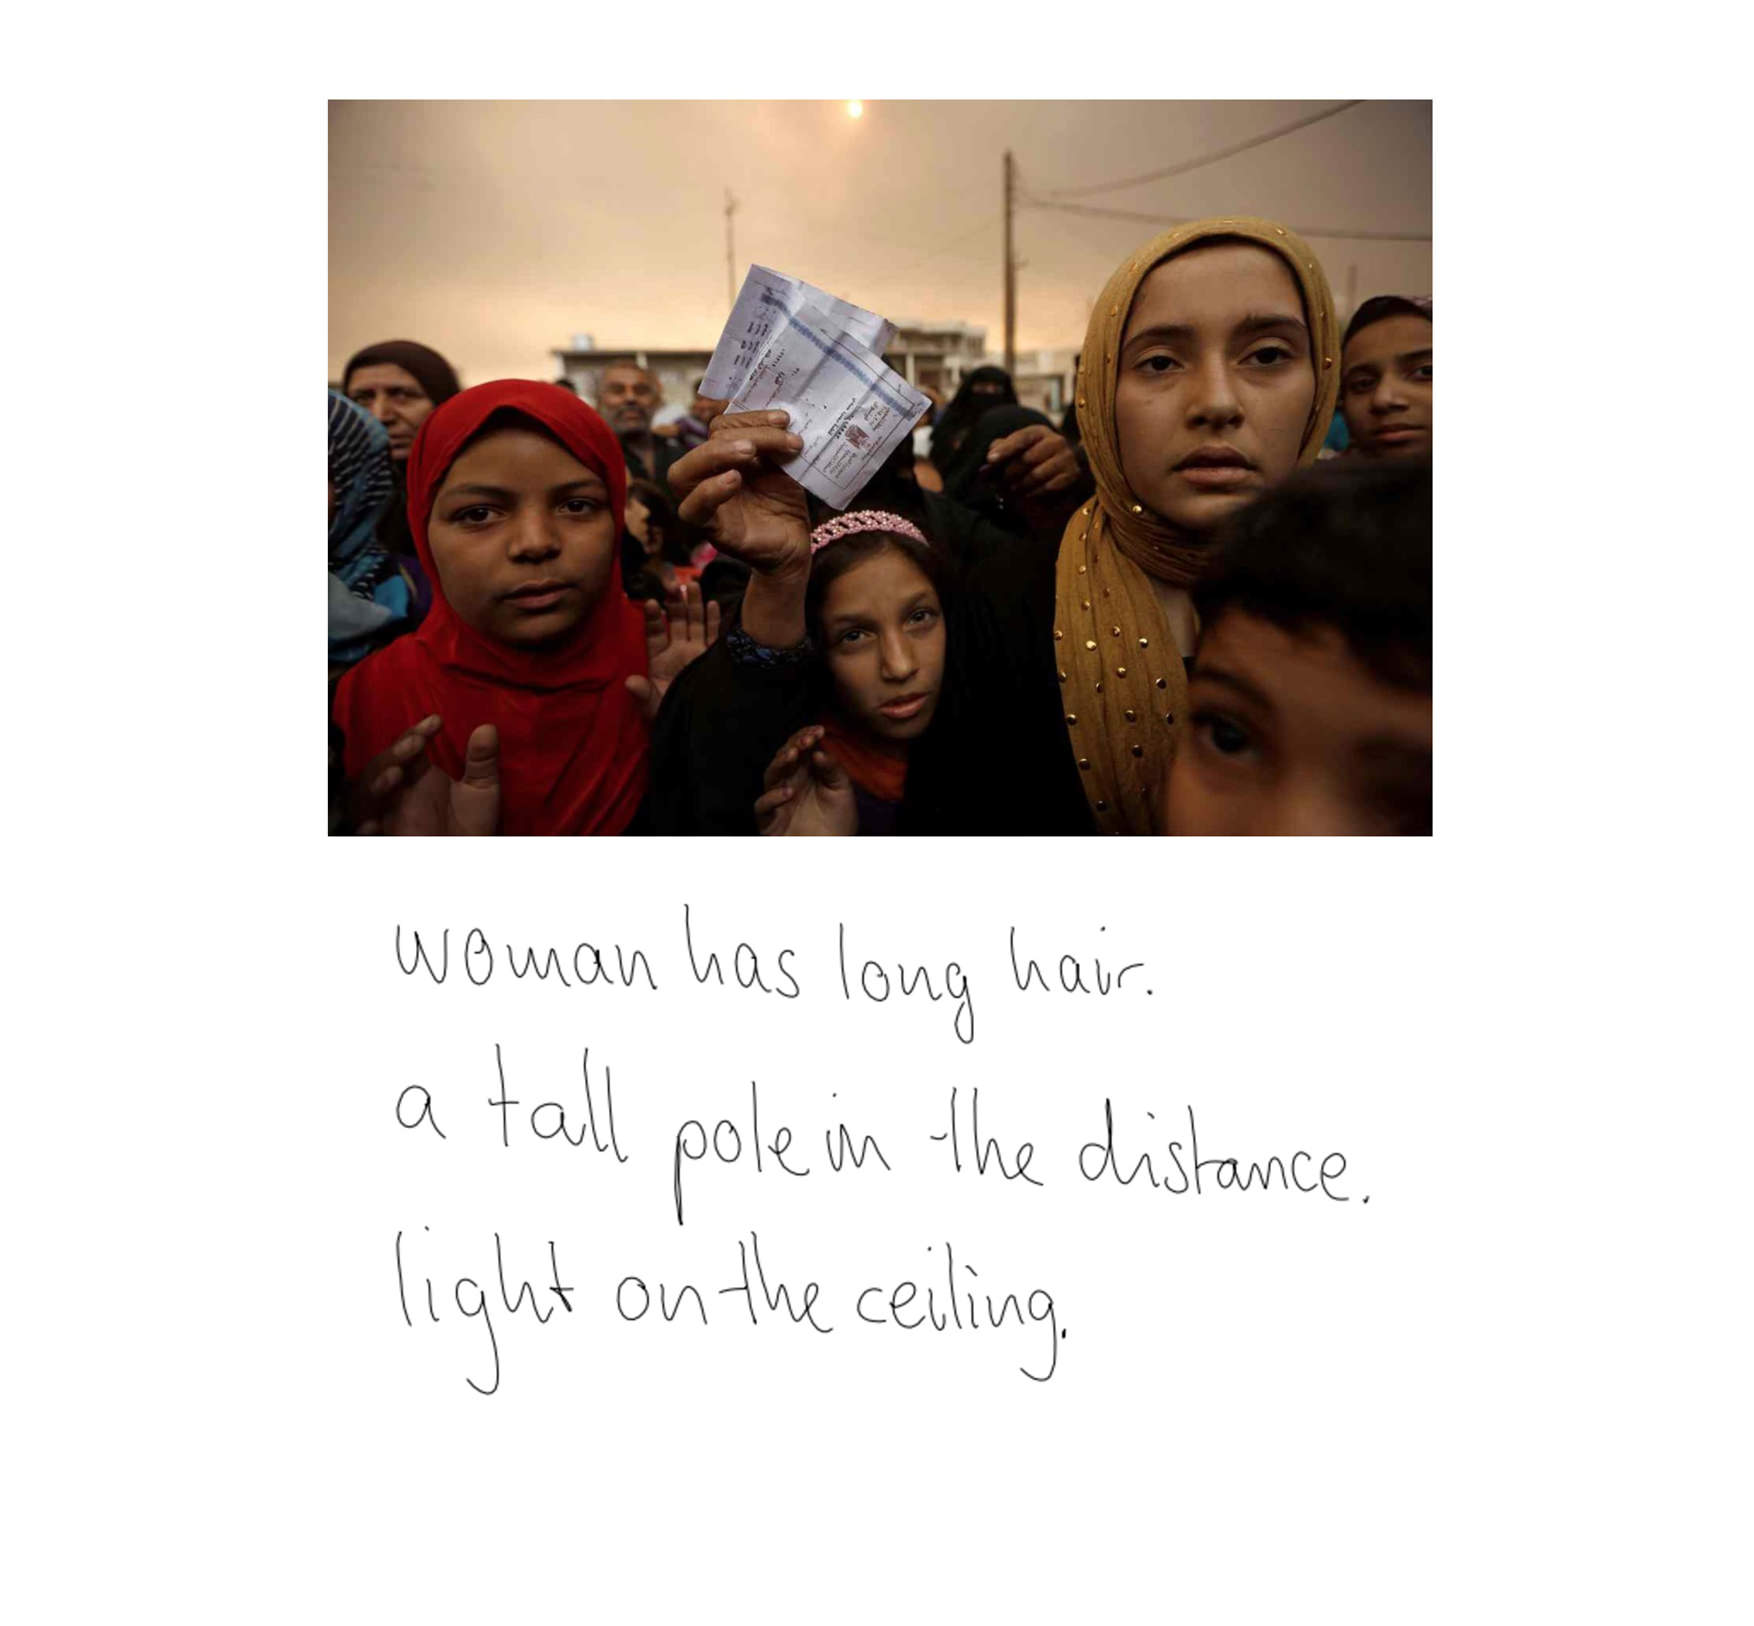 woman has long hair.
a tall pole in the distance.
light on the ceiling.